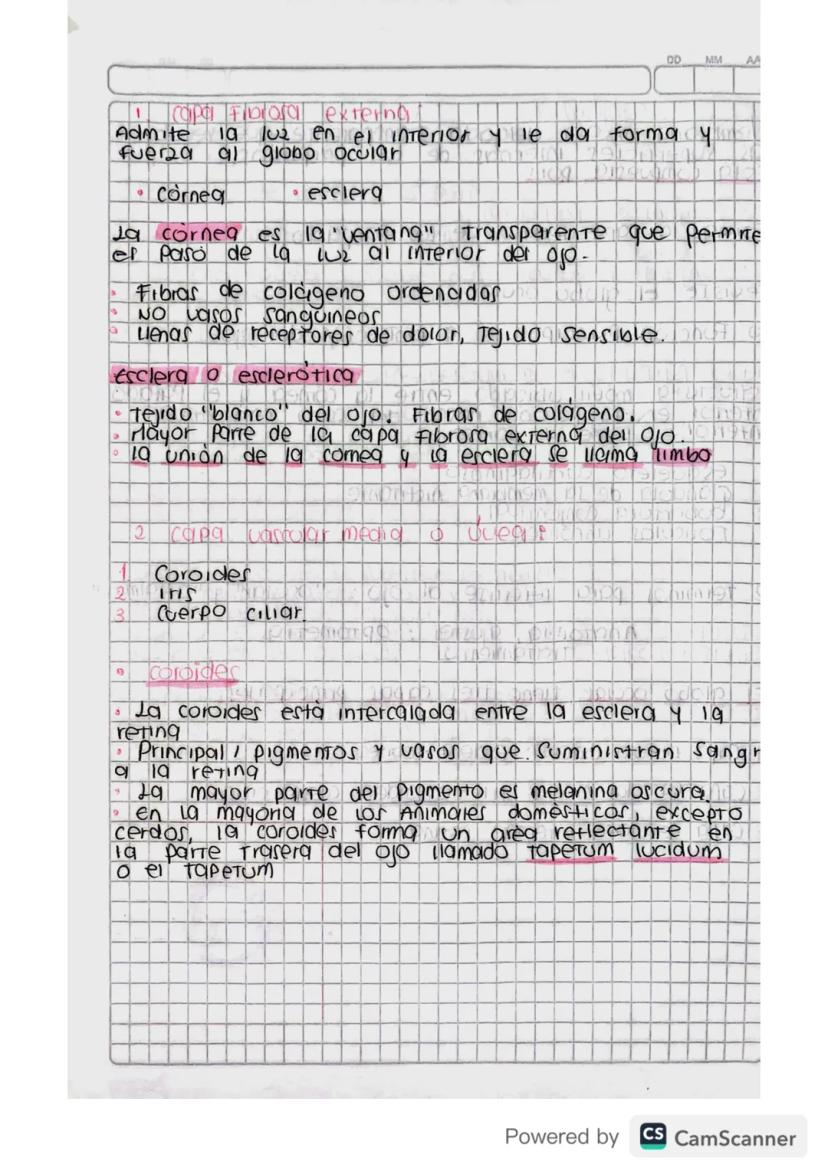 DD MM AA
1. capa Fibrosa externa:
Admite la luz en el interior y le da forma y
fuerza al globo ocular
• Córnea • esclera
La córnea es la "ventana" transparente que permite
el paso de la luz al interior del ojo.
• Fibras de colágeno ordenadas
• NO vasos sanguíneos
• llenas de receptores de dolor, Tejido sensible.
Esclera o esclerótica
• Tejido "blanco" del ojo. Fibras de colágeno.
• Mayor Parte de la capa Fibrosa externa del ojo.
• la unión de la cornea y la esclera se llama limbo
2 capa vascular media o úvea:
1 Coroides
2 iris
3 Cuerpo ciliar.
• coroides
• La coroides está intercalada entre la esclera y la
retina
• Principal / pigmentos y vasos que suministran sangr
a la retina
• La mayor parte del pigmento es melanina oscura.
• en la mayoría de los Animales domésticos, excepto
cerdos, la coroides forma un area reflectante en
la parte trasera del ojo llamado tapetum lucidum
o el tapetum
Powered by CS CamScanner